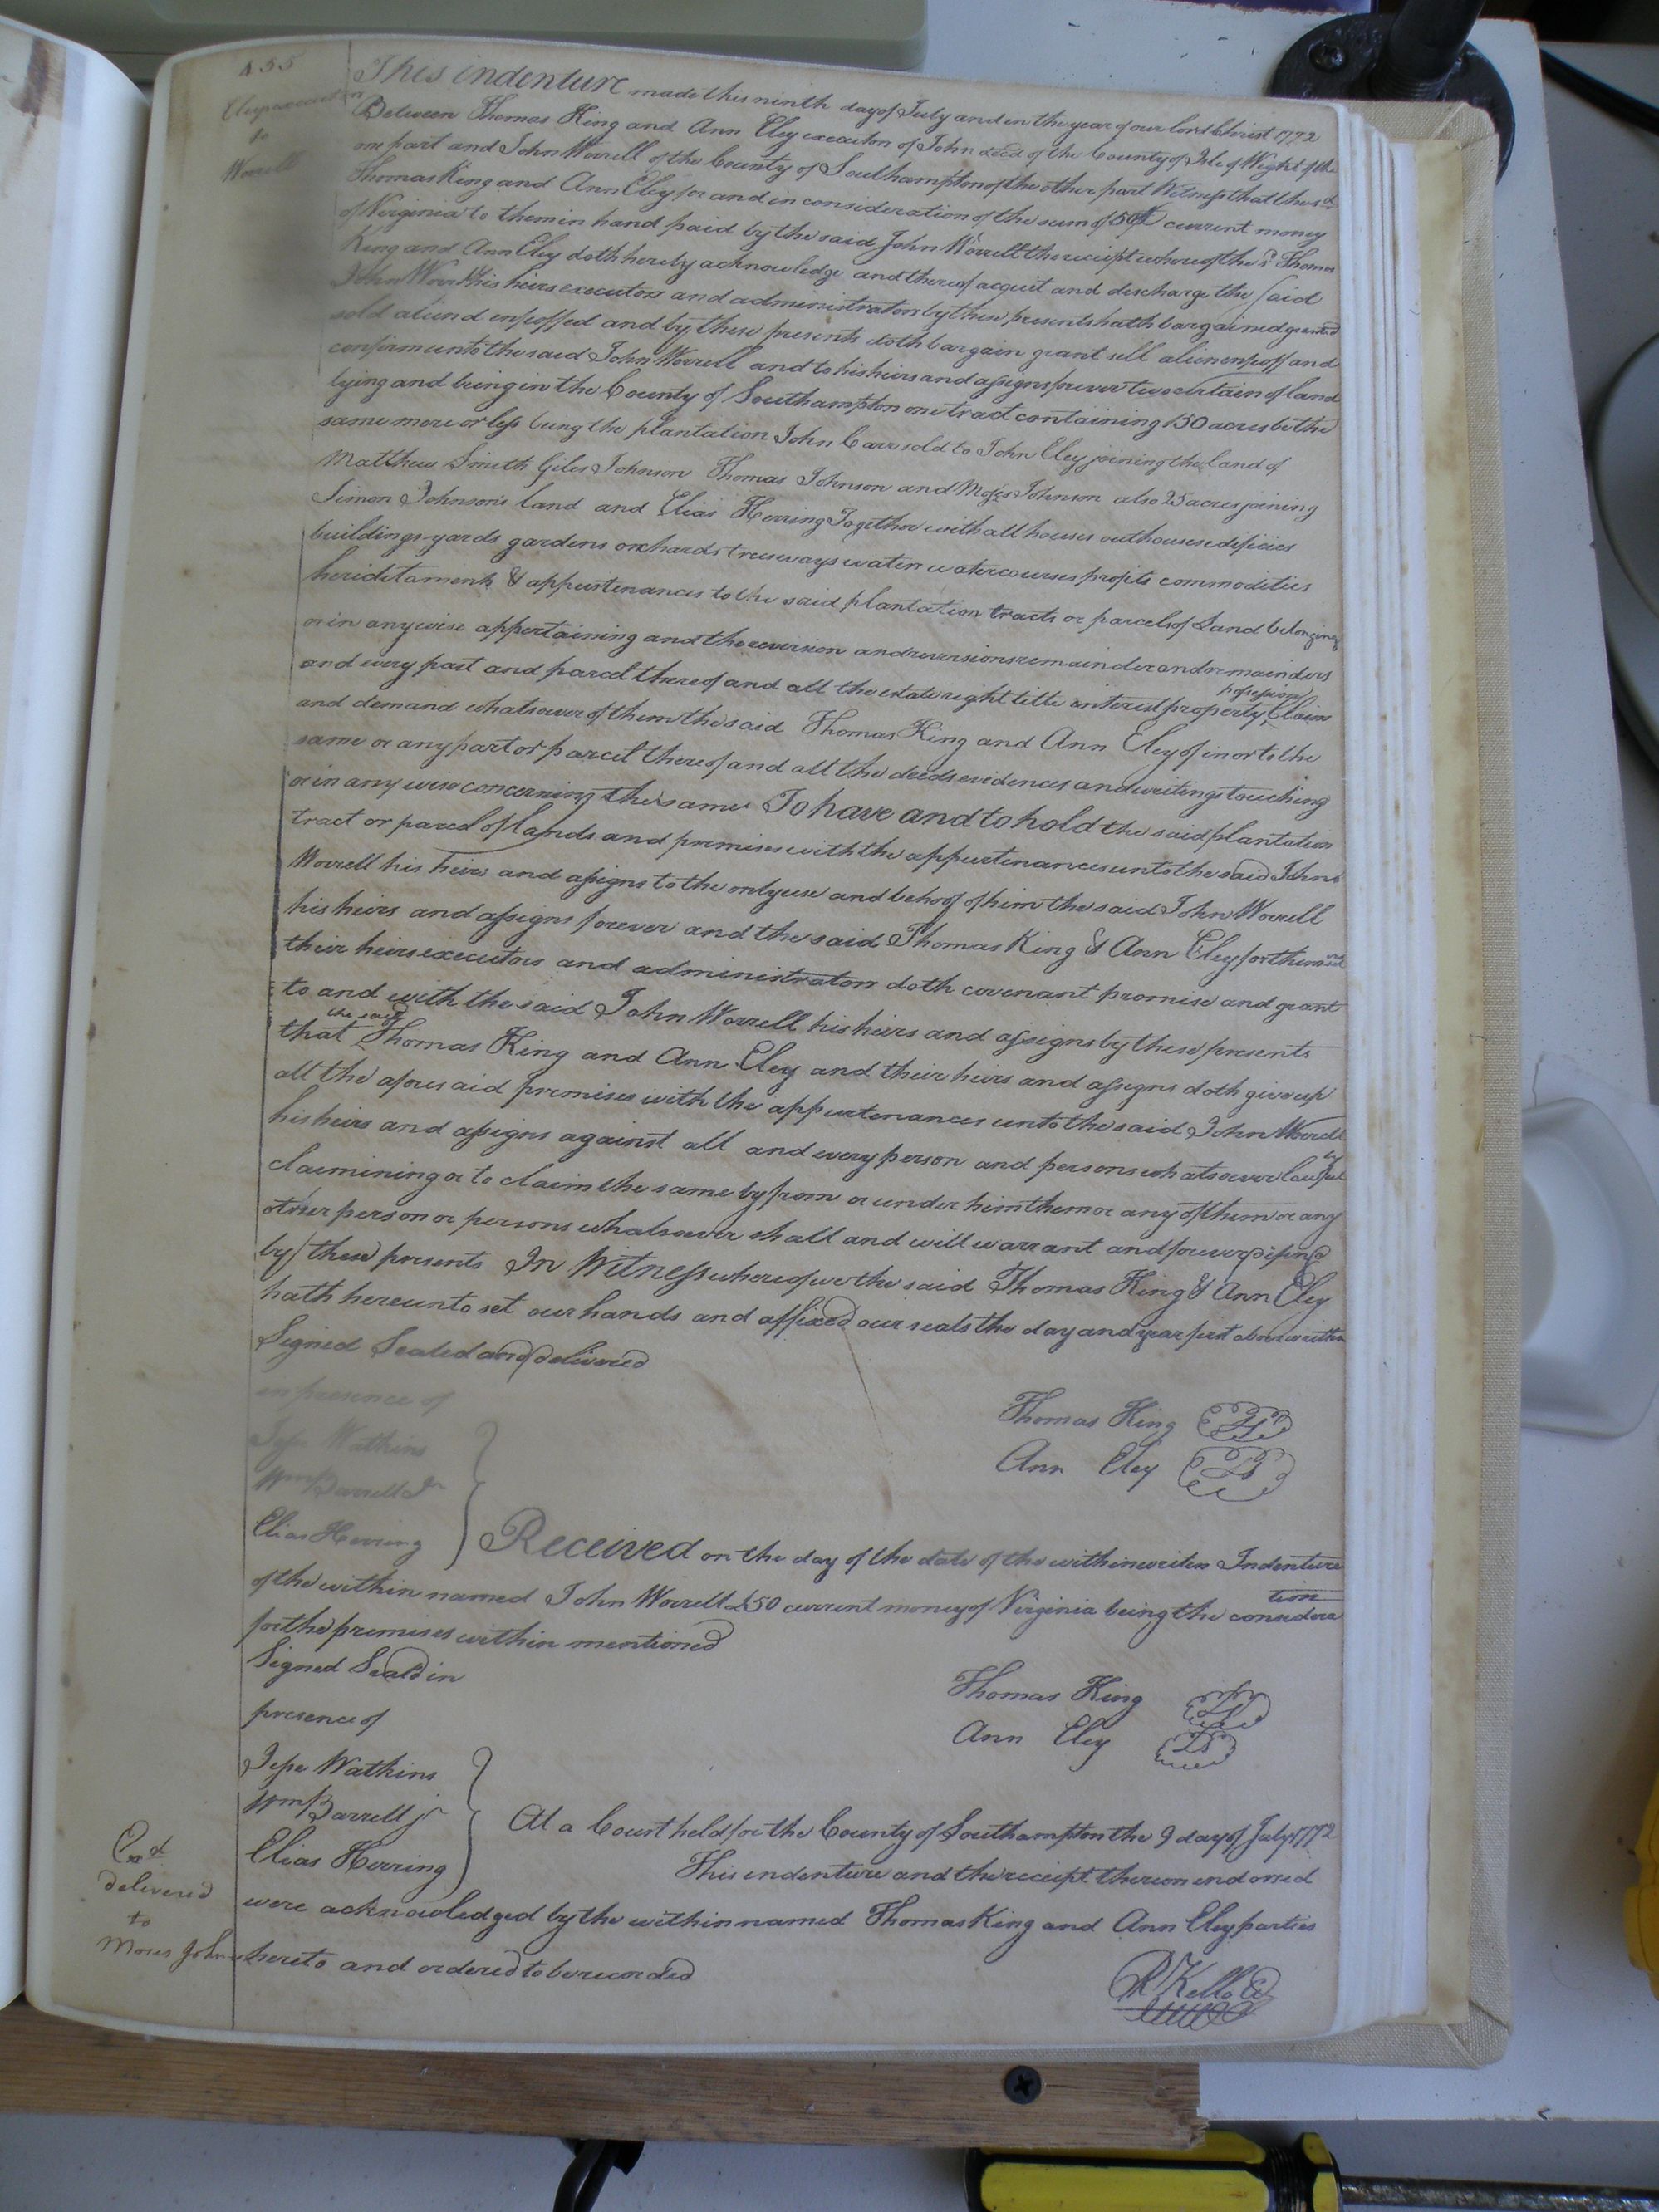 455
Eley executors
to
Worrell
This indenture made this ninth day of July and in the year of our lord Christ 1772
Between Thomas King and Ann Eley executon of John decd of the County of Isle of Wight of the
one part and John Worrell of the County of Southampton of the other part Witness that the sd
Thomas King and Ann Eley for and in consideration of the sum of 50£ current money
of Virginia to them in hand paid by the said John Worrell the receipt whereof the sd Thomas
King and Ann Eley doth hereby acknowledge and thereof acquit and discharge the said
John Worrell his heirs executors and administrators by these presents hath bargained granted
sold aliend enfeoffed and by these presents doth bargain grant sell alien enfeoff and
confirm unto the said John Worrell and to his heirs and assigns forever two certain of land
lying and being in the County of Southampton one tract containing 150 acres be the
same more or less being the plantation John Carr sold to John Eley joining the land of
Matthew Smith Giles Johnson Thomas Johnson and Moses Johnson also 25 acres joining
Simon Johnson's land and Elias Herring Together with all houses outhouses edificies
buildings yards gardens orchards trees ways waters watercourses profits commodities
heriditaments & appurtenances to the said plantation tracts or parcels of Land belonging
or in anywise appertaining and the reversion and reversions remainder and remainders
and every part and parcel thereof and all the estate right title interest property possession Claim
and demand whatsoever of them the said Thomas King and Ann Eley of in or to the
same or any part or parcel thereof and all the deeds evidences and writings touching
or in any wise concerning the same To have and to hold the said plantation
tract or parcel of lands and premises with the appurtenances unto the said John
Worrell his heirs and assigns to the only use and behoof of him the said John Worrell
his heirs and assigns forever and the said Thomas King & Ann Eley for them and
their heirs executors and administrators doth covenant promise and grant
to and with the said John Worrell his heirs and assigns by these presents
that the said Thomas King and Ann Eley and their heirs and assigns doth give up
all the aforesaid premises with the appurtenances unto the said John Worrell
his heirs and assigns against all and every person and persons whatsoever lawfully
claimining or to claim the same by from or under him them or any of them or any
other person or persons whatsoever shall and will warrant and forever defend
by these presents In Witness whereof we the said Thomas King & Ann Eley
hath hereunto set our hands and affixed our seals the day and year first above written
Signed Sealed and delivered
in presence of
Jesse Watkins
Wm Barrell Jr
Elias Herring
Thomas King LS
Ann Eley LS
Received on the day of the date of the within writen Indenture
of the within named John Worrell £50 current money of Virginia being the consideration
for the premises within mentioned
Signed Seald in
presence of
Jesse Watkins
Wm Barrell jr
Elias Herring
Thomas King LS
Ann Eley LS
At a Court held for the County of Southampton the 9 day of July 1772
This indenture and the receipt thereon endorsed
were acknowledged by the within named Thomas King and Ann Eley parties
hereto and ordered to be recorded
Exd
delivered
to
Moses Johns
R Kello